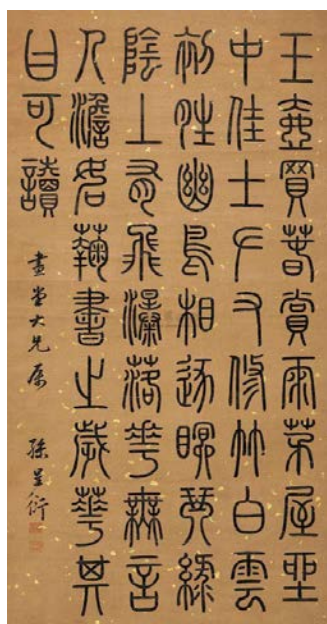 玉壺買春賞雨茅屋坐
中佳士左右修竹白雲
初晴幽鳥相逐眠琴綠
陰上有飛瀑落華無言
人澹如菊書之歲華其
曰可讀
畫堂大兄屬 孫星衍